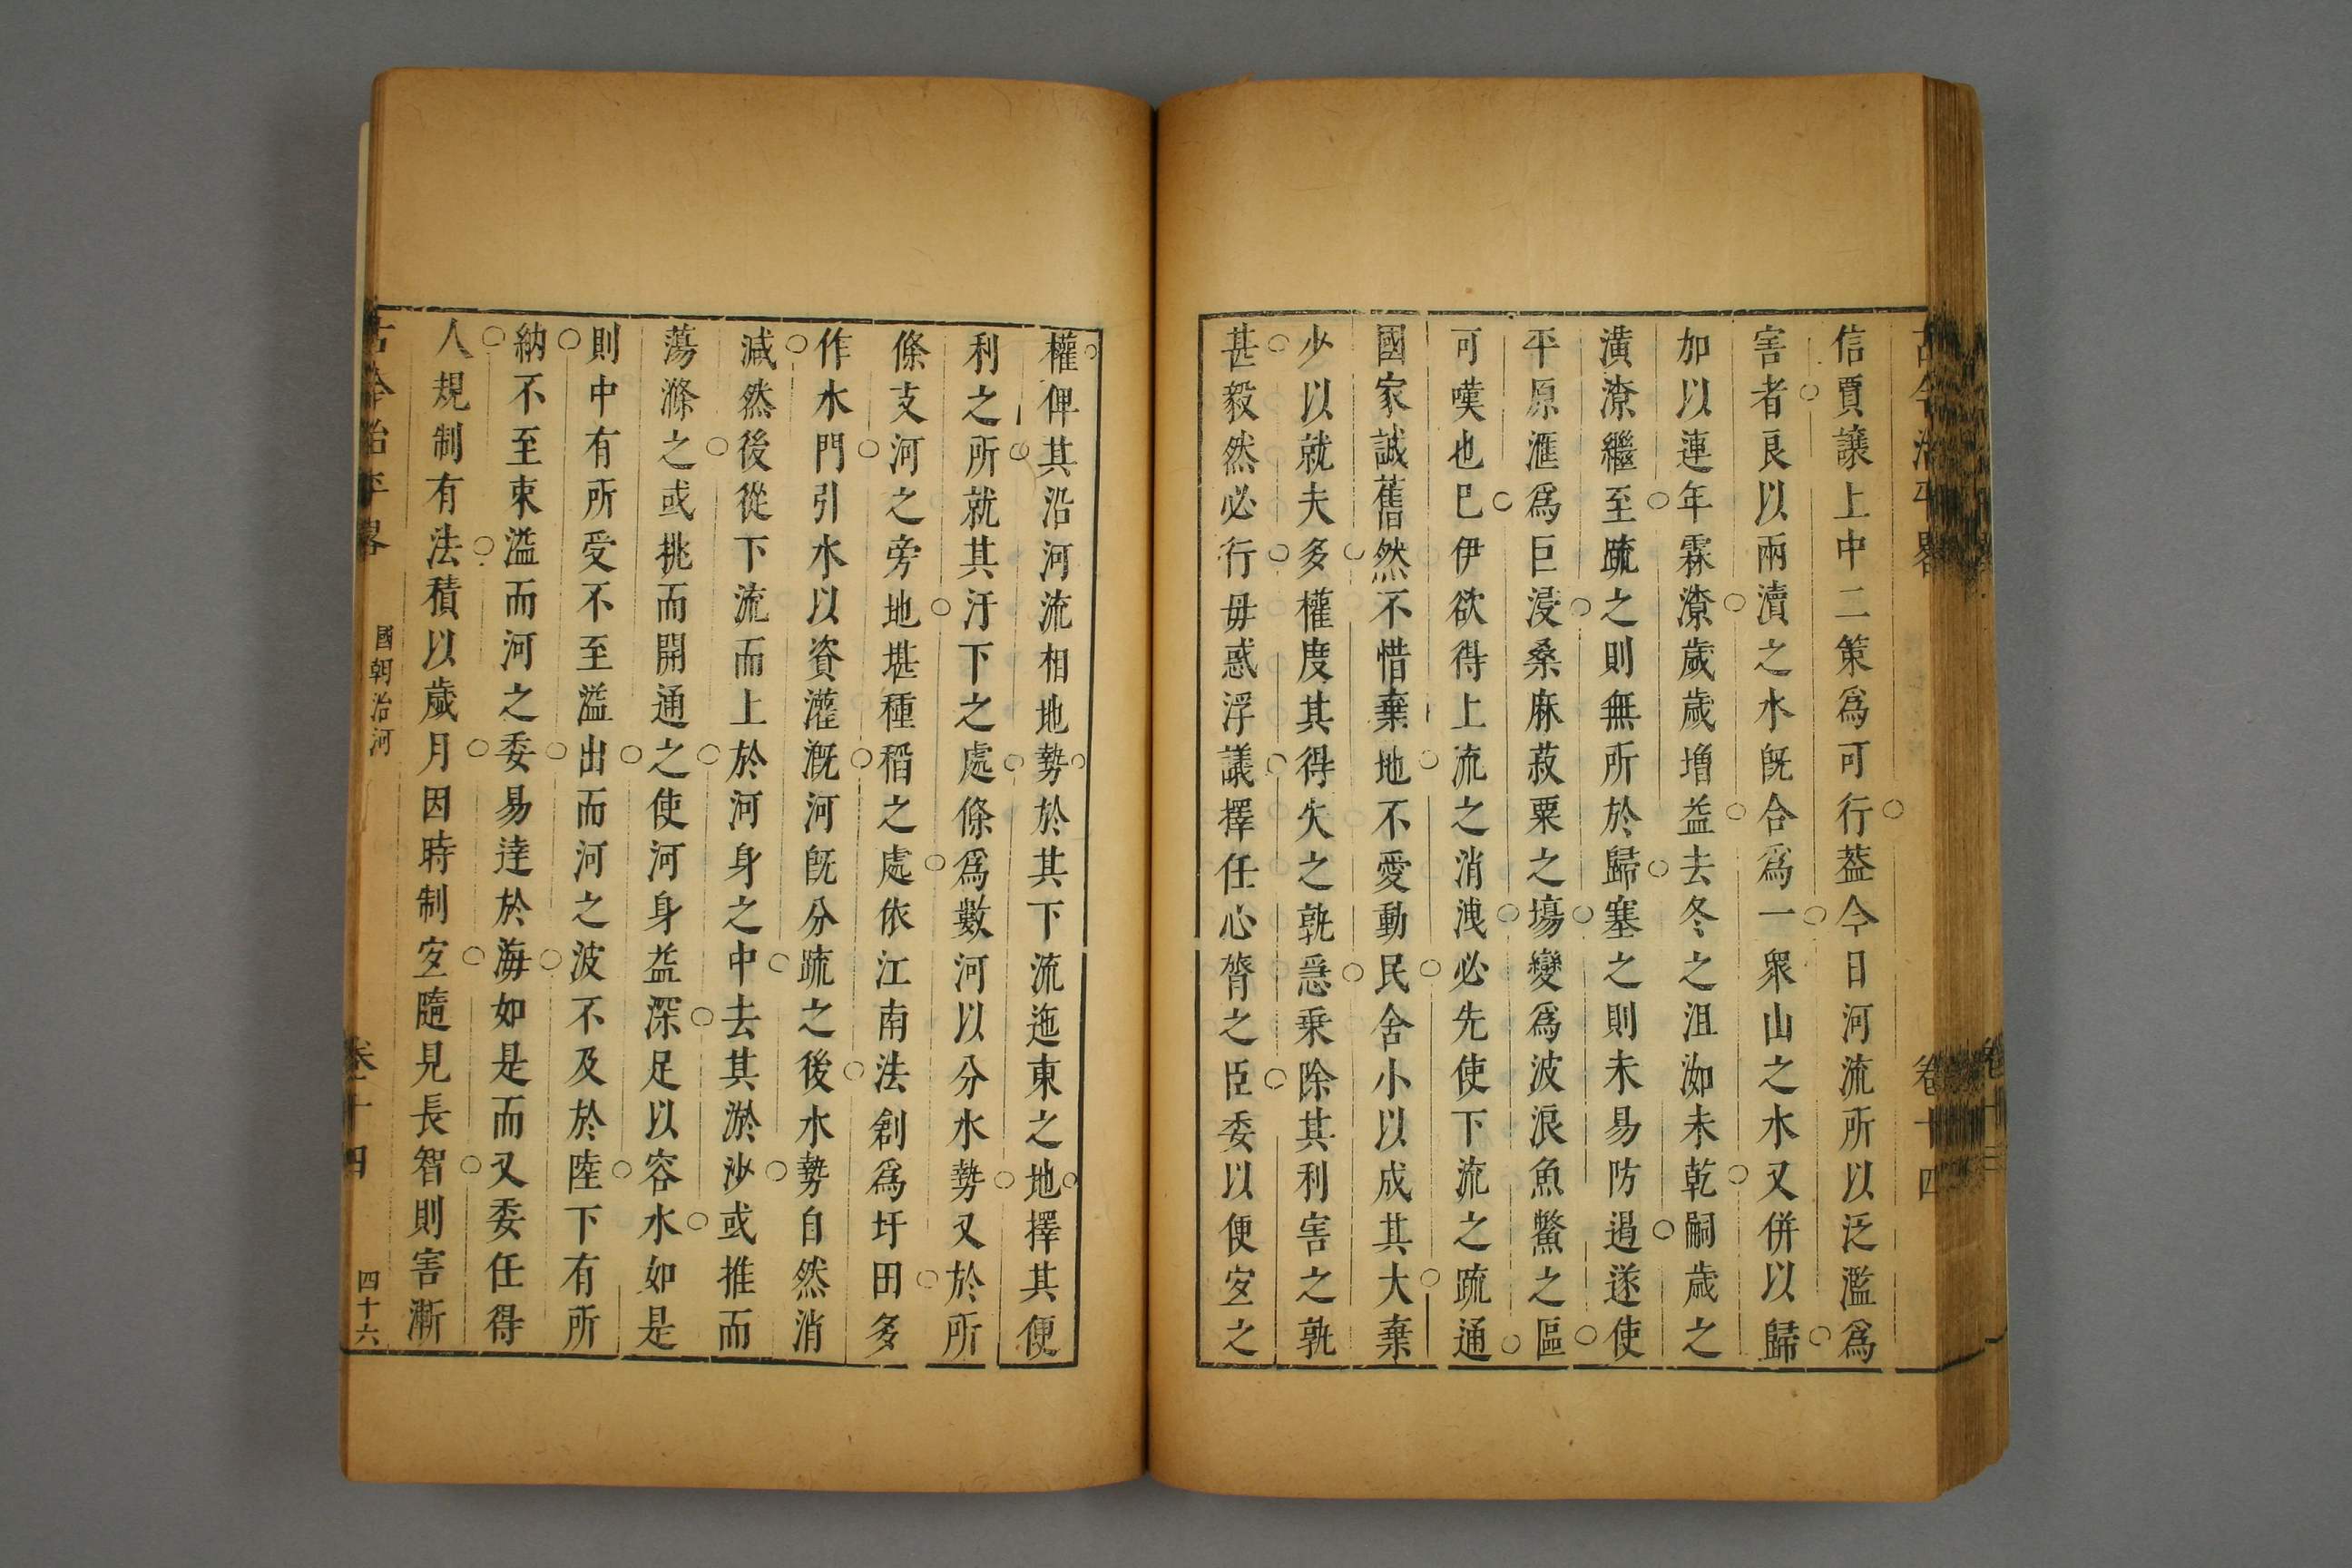 古今治平畧 卷十四
信賈讓上中二策爲可行葢今日河流所以泛濫爲
害者良以兩瀆之水旣合爲一衆山之水又併以歸
加以連年霖潦歲歲增益去冬之沮洳未乾嗣歲之
潢潦繼至疏之則無所於歸塞之則未易防遏遂使
平原滙爲巨浸桑麻菽粟之塲變爲波浪魚鱉之區
可嘆也已伊欲得上流之消洩必先使下流之疏通
國家誠舊然不惜棄地不愛動民舍小以成其大棄
少以就夫多權度其得失之孰急乗除其利害之孰
甚毅然必行毋惑浮議擇任心膂之臣委以便宐之
權俾其沿河流相地勢於其下流迤東之地擇其便
利之所就其汙下之處條爲數河以分水勢又於所
條支河之旁地堪種稻之處依江南法創爲圩田多
作水門引水以資灌漑河旣分疏之後水勢自然消
減然後從下流而上於河身之中去其淤沙或推而
蕩滌之或挑而開通之使河身益深足以容水如是
則中有所受不至溢出而河之波不及於陸下有所
納不至束溢而河之委易逹於海如是而又委任得
人規制有法積以歲月因時制宐隨見長智則害漸
古今治平畧 國朝治河 卷十四 四十六